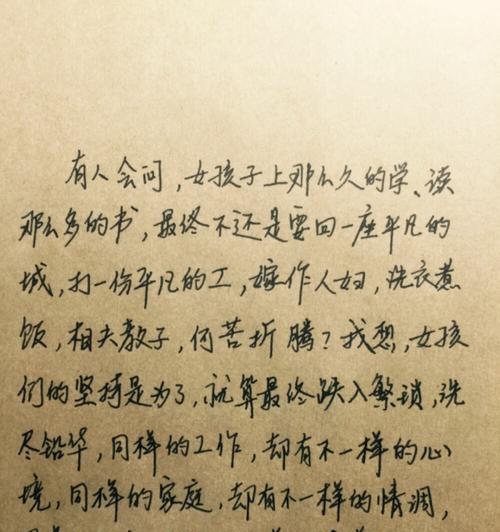 有人会问，女孩子上那么久的学、读
那么多的书，最终不还是要回一座平凡的
城，打一份平凡的工，嫁作人妇，洗衣煮
饭，相夫教子，何苦折腾？我想，女孩
们的坚持是为了，就算最终跌入繁琐，洗
尽铅华，同样的工作，却有不一样的心
境，同样的家庭，却有不一样的情调，